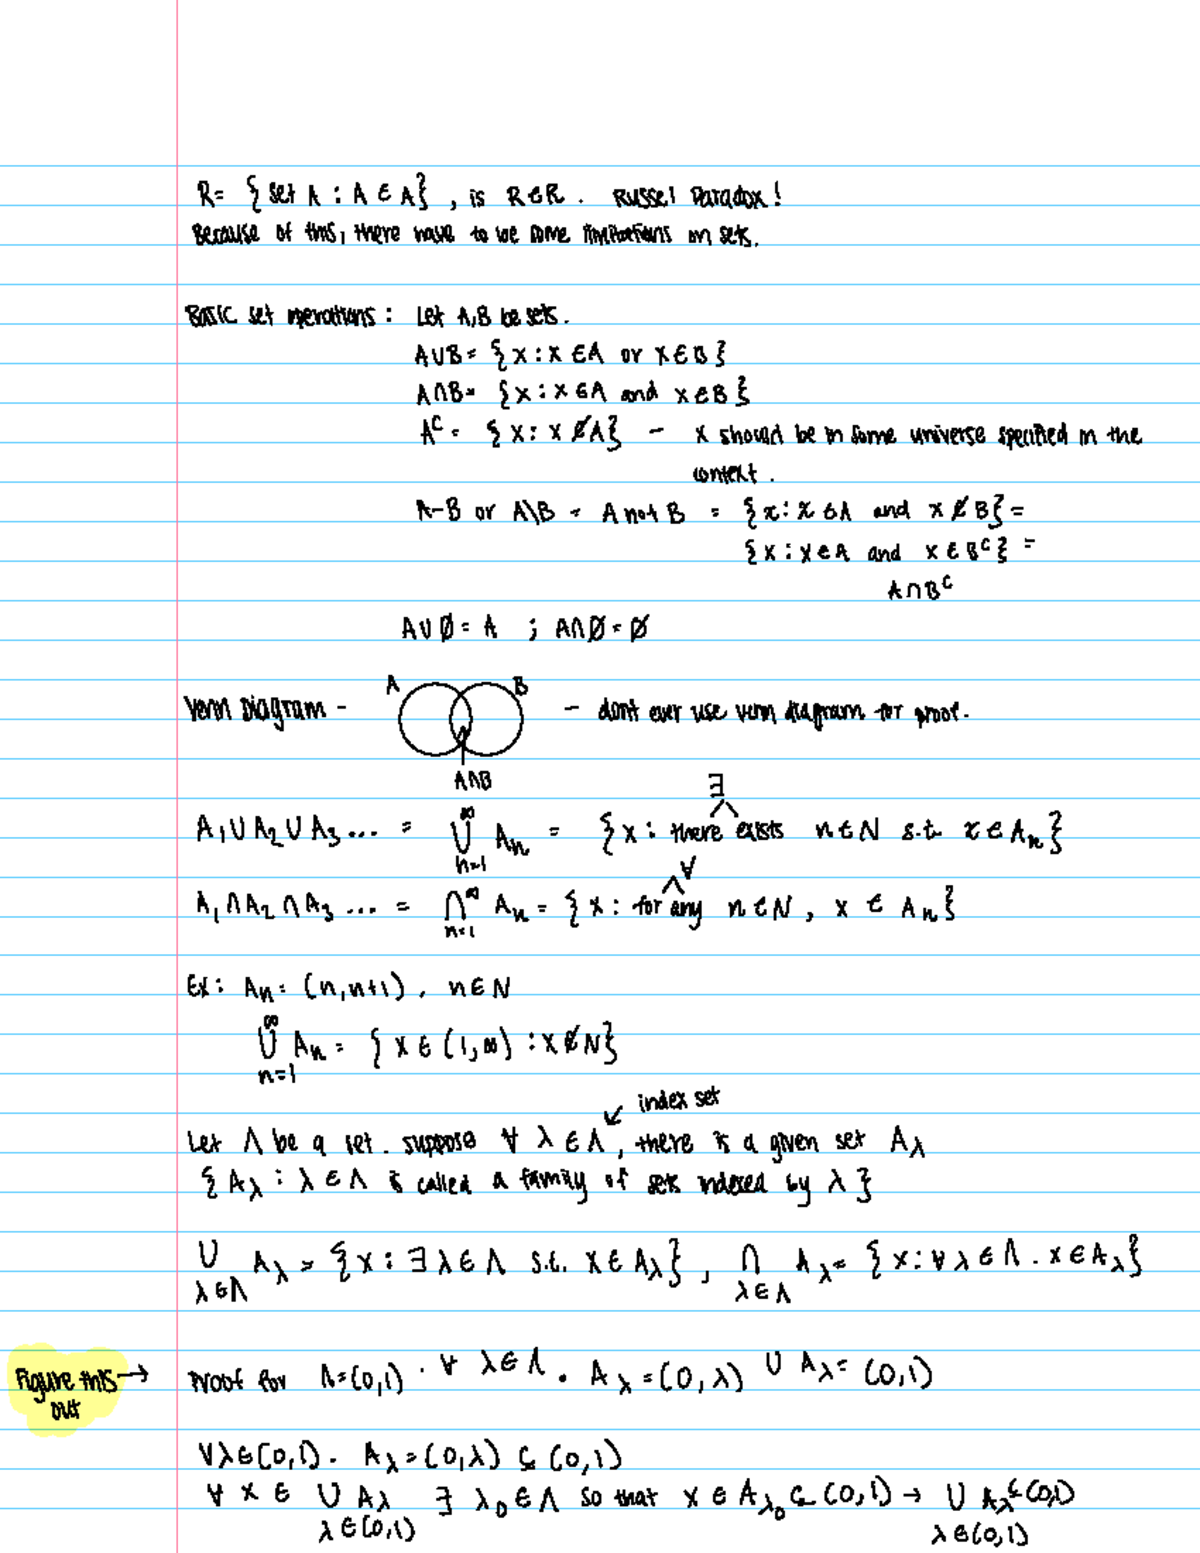 R= {set A : A ∈ A} , is R∈R . Russel Paradox!
Because of this, there have to be some limitations on sets.
Basic set operations : Let A,B be sets.
A∪B = {x : x ∈A or x∈B}
A∩B= {x : x ∈A and x∈B}
Aᶜ = {x : x ∉A} - x should be in some universe specified in the
context .
A-B or A\B = A not B = {x : x ∈A and x ∉ B} =
{x : x∈A and x ∈ Bᶜ} =
A∩Bᶜ
A∪∅ = A ; A∩∅ = ∅
A B
Venn Diagram - - dont ever use venn diagram for proof.
A∩B
∃
A₁∪A₂∪A₃ ... = ⋃ₙ₌₁^∞ Aₙ = {x : there exists n∈N s.t. x∈Aₙ}
∀
A₁∩A₂∩A₃ ... = ⋂ₙ₌₁^∞ Aₙ = {x : for any n∈N , x ∈ Aₙ}
Ex : Aₙ = (n,n+1) , n∈N
⋃ₙ₌₁^∞ Aₙ = {x∈(1,∞) : x∉N}
index set
Let Λ be a set. suppose ∀ λ∈Λ , there is a given set A_λ
{A_λ : λ∈Λ is called a family of sets indexed by λ}
⋃_{λ∈Λ} A_λ = {x : ∃ λ∈Λ s.t. x∈A_λ} , ⋂_{λ∈Λ} A_λ = {x : ∀ λ∈Λ . x∈A_λ}
Figure this → Proof for Λ=(0,1) . ∀ λ∈Λ . A_λ=(0,λ) ∪ A_λ= (0,1)
out
∀λ∈(0,1) . A_λ=(0,λ) ⊊ (0,1)
∀ x ∈ ⋃_{λ∈(0,1)} A_λ ∃ λ₀∈Λ so that x∈A_λ₀ ⊊ (0,1) → ⋃_{λ∈(0,1)} A_λ ⊊ (0,1)